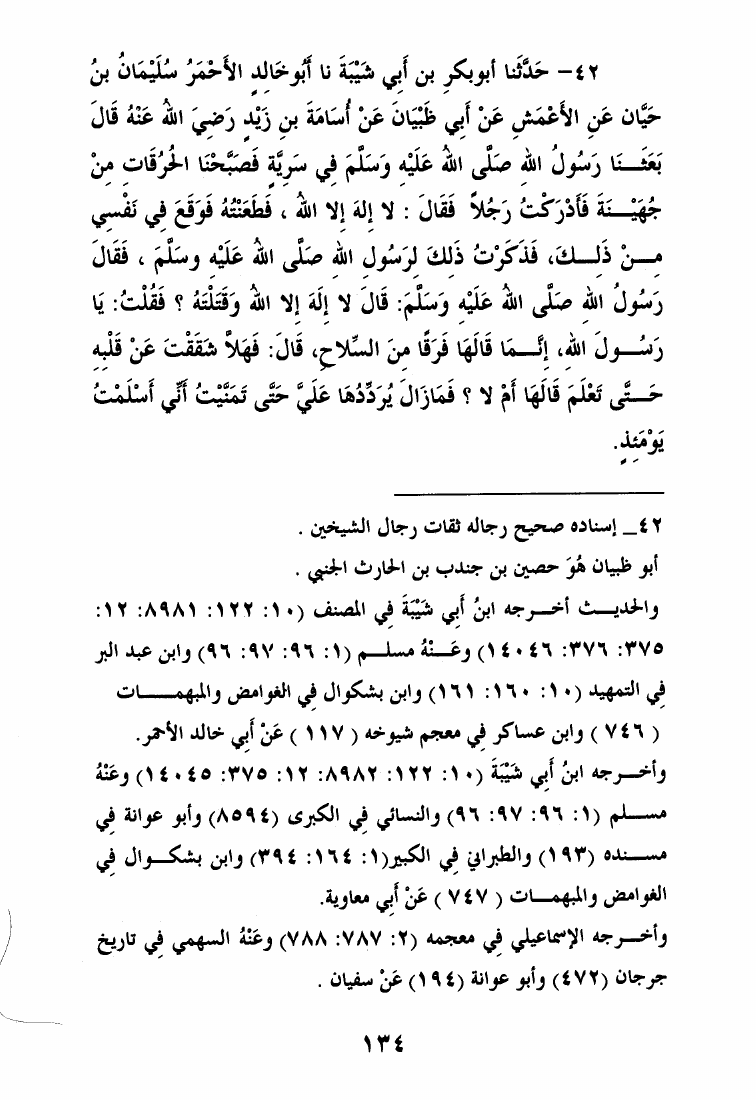 ٤٢- حَدَّثَنا أبوبكرِ بن أَبي شَيْبَةَ نا أَبُو خَالدٍ الأَحْمَرُ سُلَيْمَانُ بنُ
حَيَّان عَنِ الأَعْمَشِ عَنْ أَبي ظَبْيَانَ عَنْ أُسَامَةَ بنِ زَيْدٍ رَضِيَ الله عَنْهُ قَالَ
بَعَثَـــنَا رَسُولُ الله صَلَّى الله عَلَيْهِ وَسَلَّمَ فِي سَرِيَّةٍ فَصَبَّحْنَا الحُرُقَات مِنْ
جُهَيْـــنَةَ فَأَدْرَكْتُ رَجُلاً فَقَالَ : لا إلهَ إلا الله ، فَطَعَنْتُهُ فَوَقَعَ فِي نَفْسِي
مِـــنْ ذَلِـــكَ، فَذَكَرْتُ ذَلكَ لِرَسُولِ الله صَلَّى الله عَلَيْهِ وسَلَّمَ ، فَقَالَ
رَسُولُ الله صَلَّى الله عَلَيْهِ وَسَلَّمَ: قَالَ لا إلَهَ إلا الله وَقَتَلْتَهُ ؟ فَقُلْتُ: يَا
رَســـولَ الله، إنَّـــمَا قَالَهَا فَرَقًا مِنَ السِّلاحِ، قَالَ: فَهَلاَّ شَقَقْتَ عَنْ قَلْبِهِ
حَـــتَّى تَعْلَمَ قَالَهَا أَمْ لا ؟ فَمَازَالَ يُرَدِّدُهَا عَلَيَّ حَتَّى تَمَنَّيْتُ أَنِّي أَسْلَمْتُ
يَوْمَئِذٍ.
٤٢_ إسناده صحيح رجاله ثقات رجال الشيخين .
أبو ظبيان هُوَ حصين بن جندب بن الحارث الجنبي .
والحديـــث أخـــرجه ابنُ أبي شَيْبَةَ فِي المصنف (١٠: ١٢٢: ٨٩٨١: ١٢:
٣٧٥: ٣٧٦: ١٤٠٤٦) وعَـــنْهُ مســـلم (١: ٩٦: ٩٧: ٩٦) وابن عبد البر
فِي التمهيد (١٠: ١٦٠: ١٦١) وابن بشكوال فِي الغوامض والمبهمـــات
( ٧٤٦ ) وابن عساكر فِي معجم شيوخه ( ١١٧ ) عَنْ أبي خالد الأحمر.
وأخـــرجه ابنُ أبي شَيْبَةَ (١٠: ١٢٢: ٨٩٨٢: ١٢: ٣٧٥: ١٤٠٤٥) وعَنْهُ
مســـلم (١: ٩٦: ٩٧: ٩٦) والنسائي فِي الكبرى (٨٥٩٤) وأبو عوانة فِي
مســـنده (١٩٣) والطبراني فِي الكبير(١: ١٦٤: ٣٩٤) وابن بشكـــوال فِي
الغوامض والمبهمـــات ( ٧٤٧ ) عَنْ أبي معاوية.
وأخـــرجه الإسماعيلي فِي معجمه (٢: ٧٨٧: ٧٨٨) وعَنْهُ السهمي فِي تاريخ
جرجان (٤٧٢) وأبو عوانة (١٩٤) عَنْ سفيان .
١٣٤